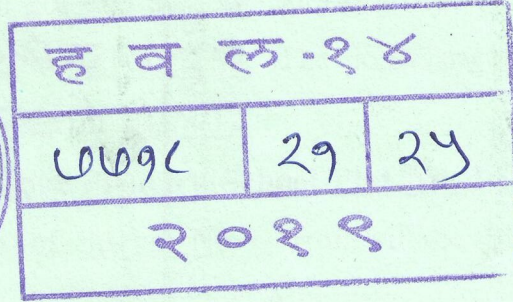 ह व ल - १४
७७१८ २१ २५
२०१९